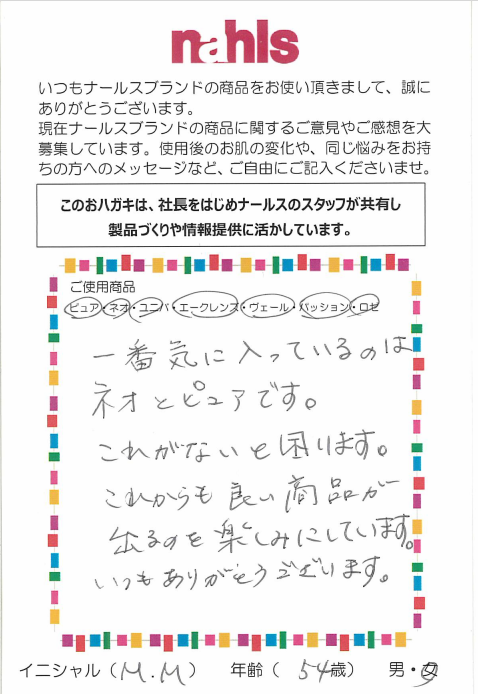 nahls
いつもナールスブランドの商品をお使い頂きまして、誠に
ありがとうございます。
現在ナールスブランドの商品に関するご意見やご感想を大
募集しています。使用後のお肌の変化や、同じ悩みをお持
ちの方へのメッセージなど、ご自由にご記入くださいませ。
このおハガキは、社長をはじめナールスのスタッフが共有し
製品づくりや情報提供に活かしています。
ご使用商品
ピュア・ネオ・ユニバ・エークレンズ・ヴェール・パッション・ロゼ
一番気に入っているのは
ネオとピュアです。
これがないと困ります。
これからも良い商品が
出るのを楽しみにしています。
いつもありがとうございます。
イニシャル（M.M） 年齢（54歳） 男・女